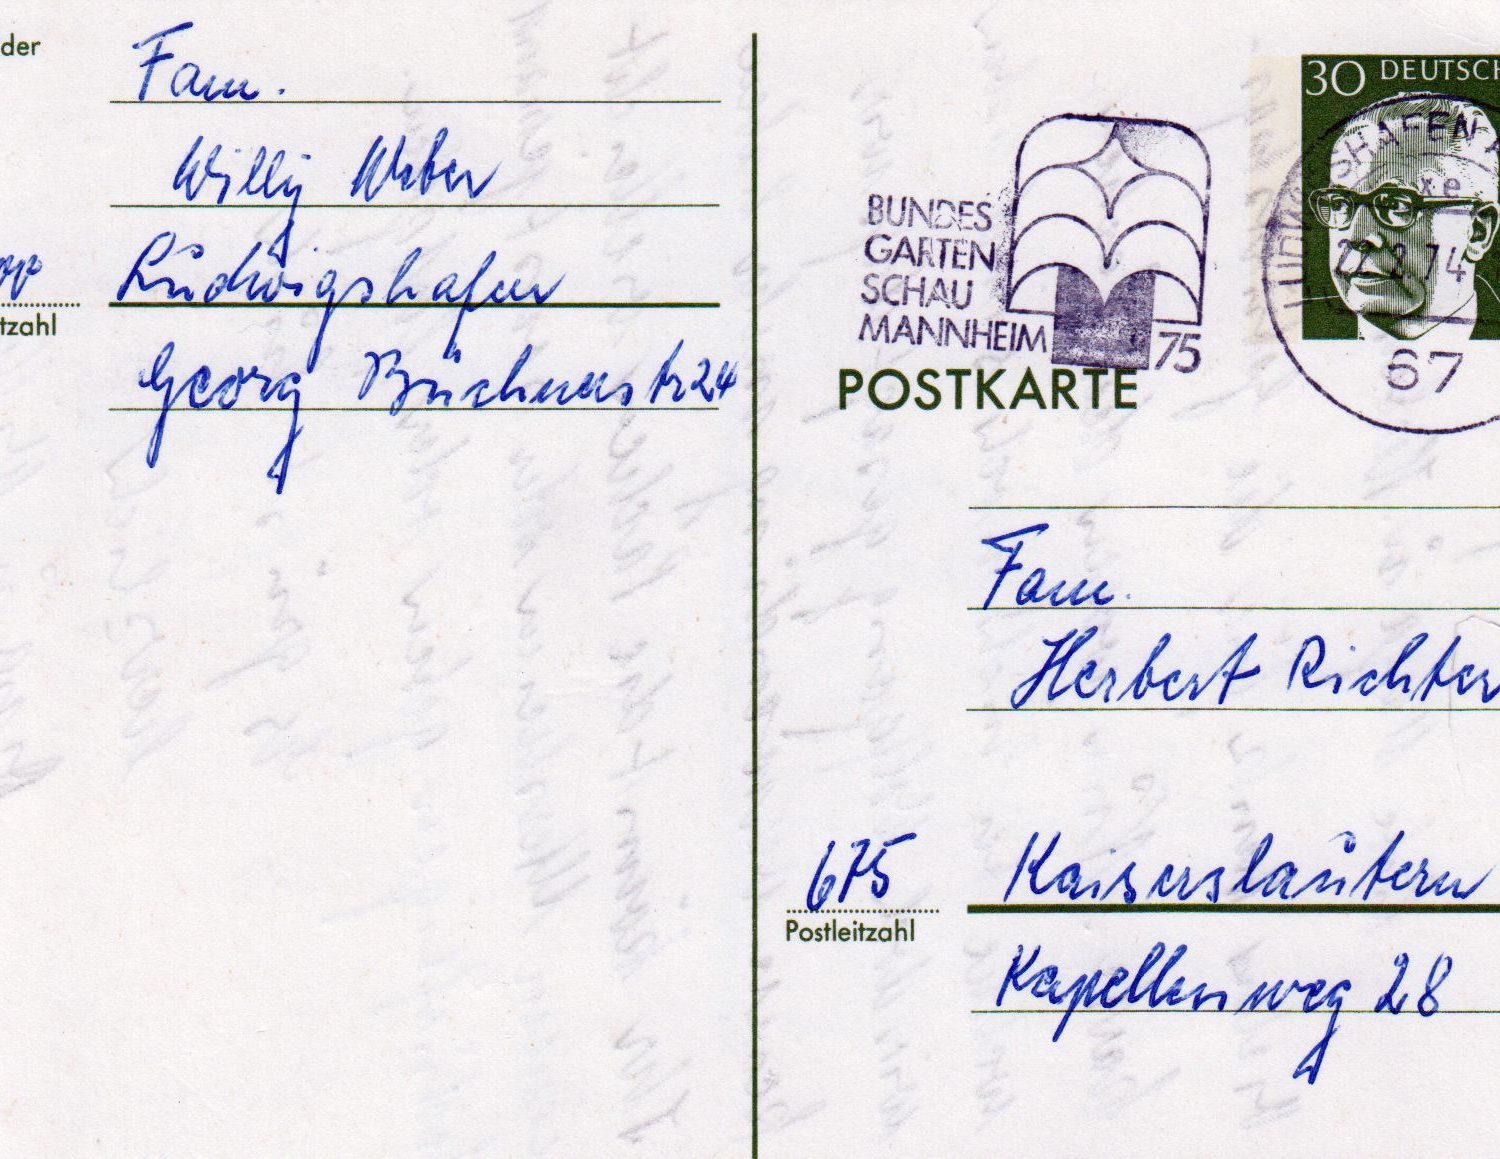 der
Fam.
Willy Weber
Ludwigshafen
tzahl
Georg Büchnerstr 24
BUNDES
GARTEN
SCHAU
MANNHEIM 75
30 DEUTSCH
LUDWIGSHAFEN A
xe
22.2.74
67
POSTKARTE
Fam.
Herbert Richter
675 Kaiserslautern
Postleitzahl
Kapellenweg 28